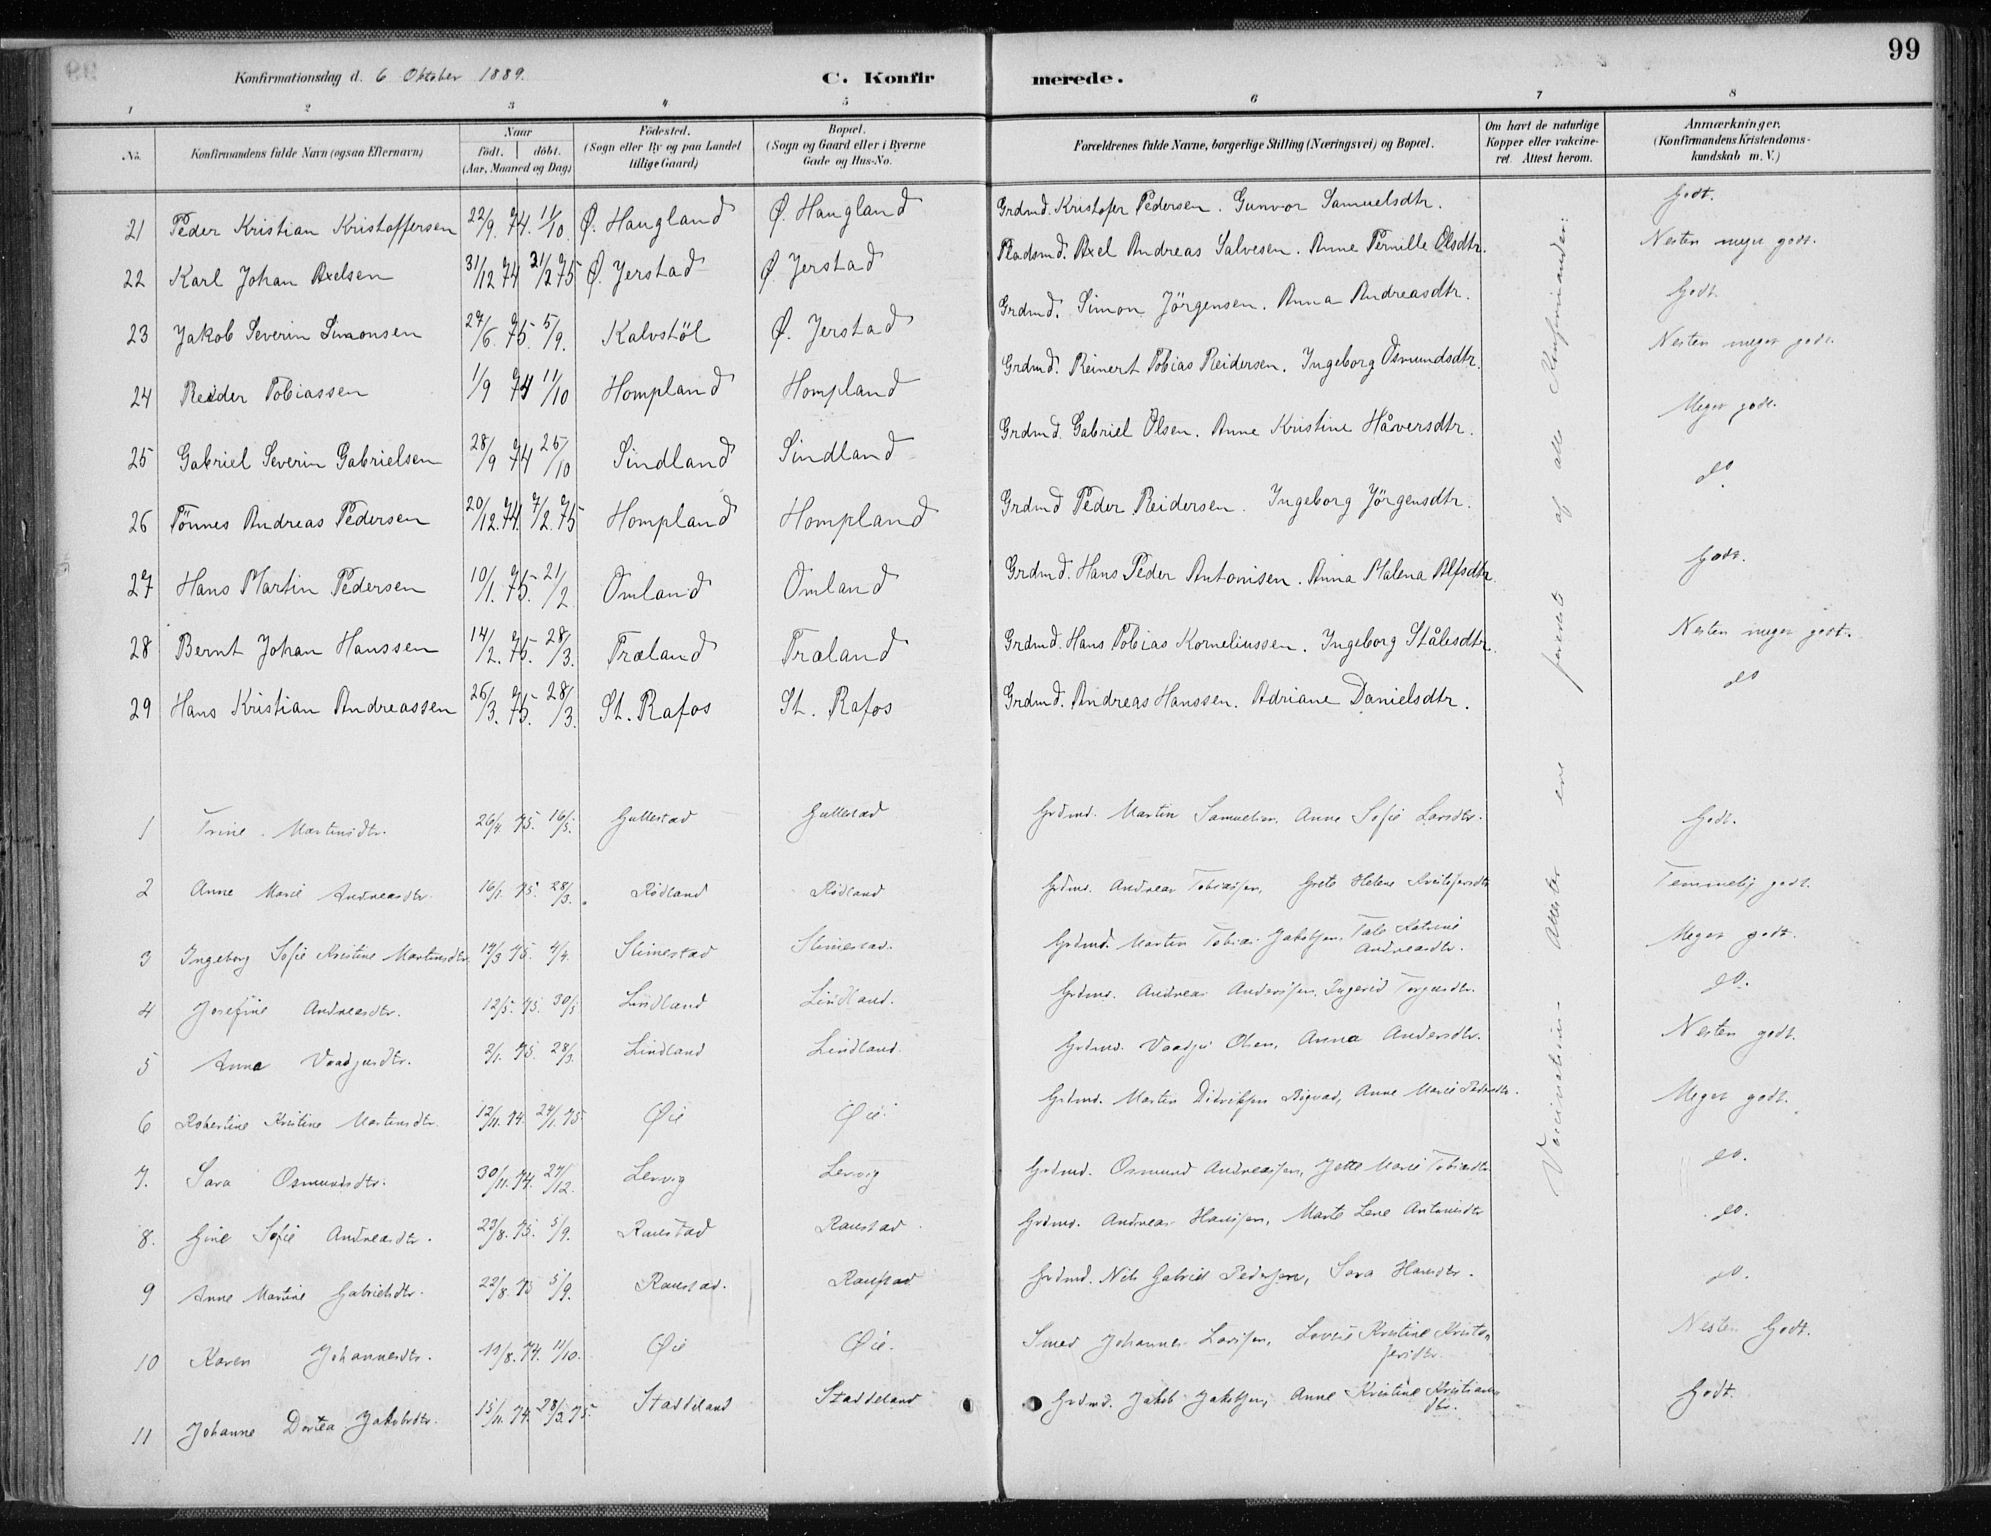 99
Konfirmationsdag d. 6 Oktober 1889.
C. Konfirmerede.
1 2 3 4 5 6 7 8
No.
Konfirmandens fulde Navn (ogsaa Efternavn)
Naar
födt. döbt.
(Aar, Maaned og Dag)
Födested.
(Sogn eller By og paa Landet
tillige Gaard)
Bopæl.
(Sogn og Gaard eller i Byerne
Gade og Hus-No.
Forældrenes fulde Navne, borgerlige Stilling (Næringsvei) og Bopæl.
Om havt de naturlige
Kopper eller vakcine-
ret. Attest herom.
Anmærkninger.
(Konfirmandens Kristendoms-
kundskab m. V.)
21 Peder Kristian Kristoffersen 22/9. 74. 11/10. Ø. Haugland Ø. Haugland Grdmd. Kristofer Pedersen. Gunvor Samuelsdtr. Godt.
22 Karl Johan Axelsen 31/12 74 21/2 75 Ø. Jerstad Ø. Jerstad Pladsmd. Axel Andreas Salvesen. Anne Pernille Olsdtr. Nesten meget godt.
23 Jakob Severin Simonsen 27/6. 75. 5/9. Kalvstöl Ø. Jerstad Grdmd. Simon Jörgensen. Anna Andreasdtr. Godt.
24 Reider Tobiassen 1/9 74 11/10 Hompland Hompland Grdmd. Reinert Tobias Reidersen. Ingeborg Osmundsdtr. Nesten meget godt.
25 Gabriel Severin Gabrielsen 28/9 74 25/10 Sindland Sindland Grdmd. Gabriel Olsen. Anne Kristine Håversdtr. Meget godt.
26 Tönnes Andreas Pedersen 20/12. 74. 7/2. 75 Hompland Hompland Grdmd Peder Reidersen. Ingeborg Jörgensdtr. do.
27 Hans Martin Pedersen 10/1. 75. 21/2 Omland Omland Grdmd. Hans Peder Antonisen. Anna Malena Alfsdtr. Godt.
28 Bernt Johan Hanssen 14/2. 75. 28/3. Træland Træland Grdmd. Hans Tobias Korneliussen. Ingeborg Stålesdtr. Nesten meget godt.
29 Hans Kristian Andreassen 26/3. 75. 28/3. St. Rafos St. Rafos Grdmd. Andreas Hanssen. Adriane Danielsdtr. do
1 Trine Martinsdtr. 26/4. 75. 16/5. Gullestad Gullestad Grdmd. Martin Samuelsen, Anne Sofie Larsdtr. Godt.
2 Anne Marie Andreasdtr. 16/1. 75. 28/3. Rödland Rödland Grdmd. Andreas Tobiassen, Grete Helene Kristofersdtr Temmelig godt.
3 Ingeborg Sofie Kristine Martinsdtr. 17/3 75. 4/4. Stimestad Stimestad. Grdmd. Martin Tobias Jakobsen, Tale Katrine Andreasdtr. Meget godt.
4 Josefine Andreasdtr. 12/5. 75. 30/5 Lindland Lindland. Grdmd. Andreas Anderssen, Ingerid Torjusdtr. do.
5 Anna Vradjusdtr. 2/1. 75. 28/3. Lindland Lindland. Grdmd. Olsen, Anna Andersdtr. Nesten godt.
6 Robertine Kristine Martinsdtr. 12/11. 74. 24/1. 75 Øie Øie. Grdmd. Martin Didriksen Rigvad, Anne Marie Pedersdtr. Meget godt.
7. Sara Osmundsdtr. 30/11. 74. 27/12. Lervig Lervig Grdmd. Osmund Andreassen, Jette Marie Tobiasdtr do.
8. Gine Sofie Andreasdtr. 23/8. 75. 5/9. Raustad Raustad. Grdmd. Andreas Hanssen, Marte Lene Antonisdtr do.
9 Anne Martine Gabrielsdtr. 22/8. 75 5/9. Raustad. Raustad Grdmd. Nils Gabriel Pedersen, Sara Hansdtr. do.
10 Karen Johannesdtr. 19/8. 74. 11/10. Øie Øie. Smed Johannes Larssen, Lovise Kristine Kristofersdtr. Nesten Godt.
11 Johanne Dortea Jakobsdtr. 15/11. 74. 28/3. 75. Staddeland Staddeland Grdmd. Jakob Jakobsen, Anne Kristine Kristiansdtr. Godt.
Vaccinations Attester ere foreviste af alle Konfirmander.